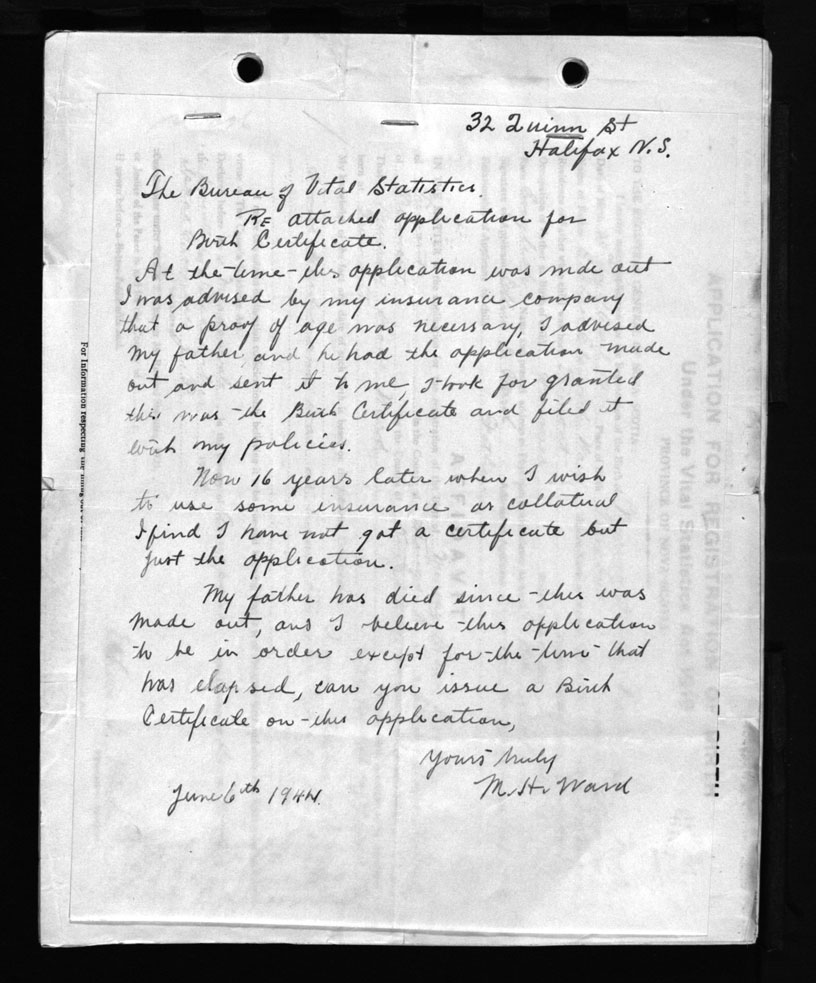 32 Quinn St
Halifax N.S.
The Bureau of Vital Statistics.
RE attached application for
Birth Certificate.
At the time this application was made out
I was advised by my insurance company
that a proof of age was necessary, I advised
my father, and he had the application made
out and sent it to me, I took for granted
this was the Birth Certificate and filed it
with my policies.
Now 16 years later when I wish
to use some insurance as collateral
I find I have not got a certificate but
just the application.
My father has died since this was
made out, and I believe this application
to be in order except for the time that
has elapsed, can you issue a Birth
Certificate on this application,
Yours truly
M. H. Ward
June 6th 1944.
For Information respecting
APPLICATION FOR REGISTRATION OF BIRTH
Under the Vital Statistics